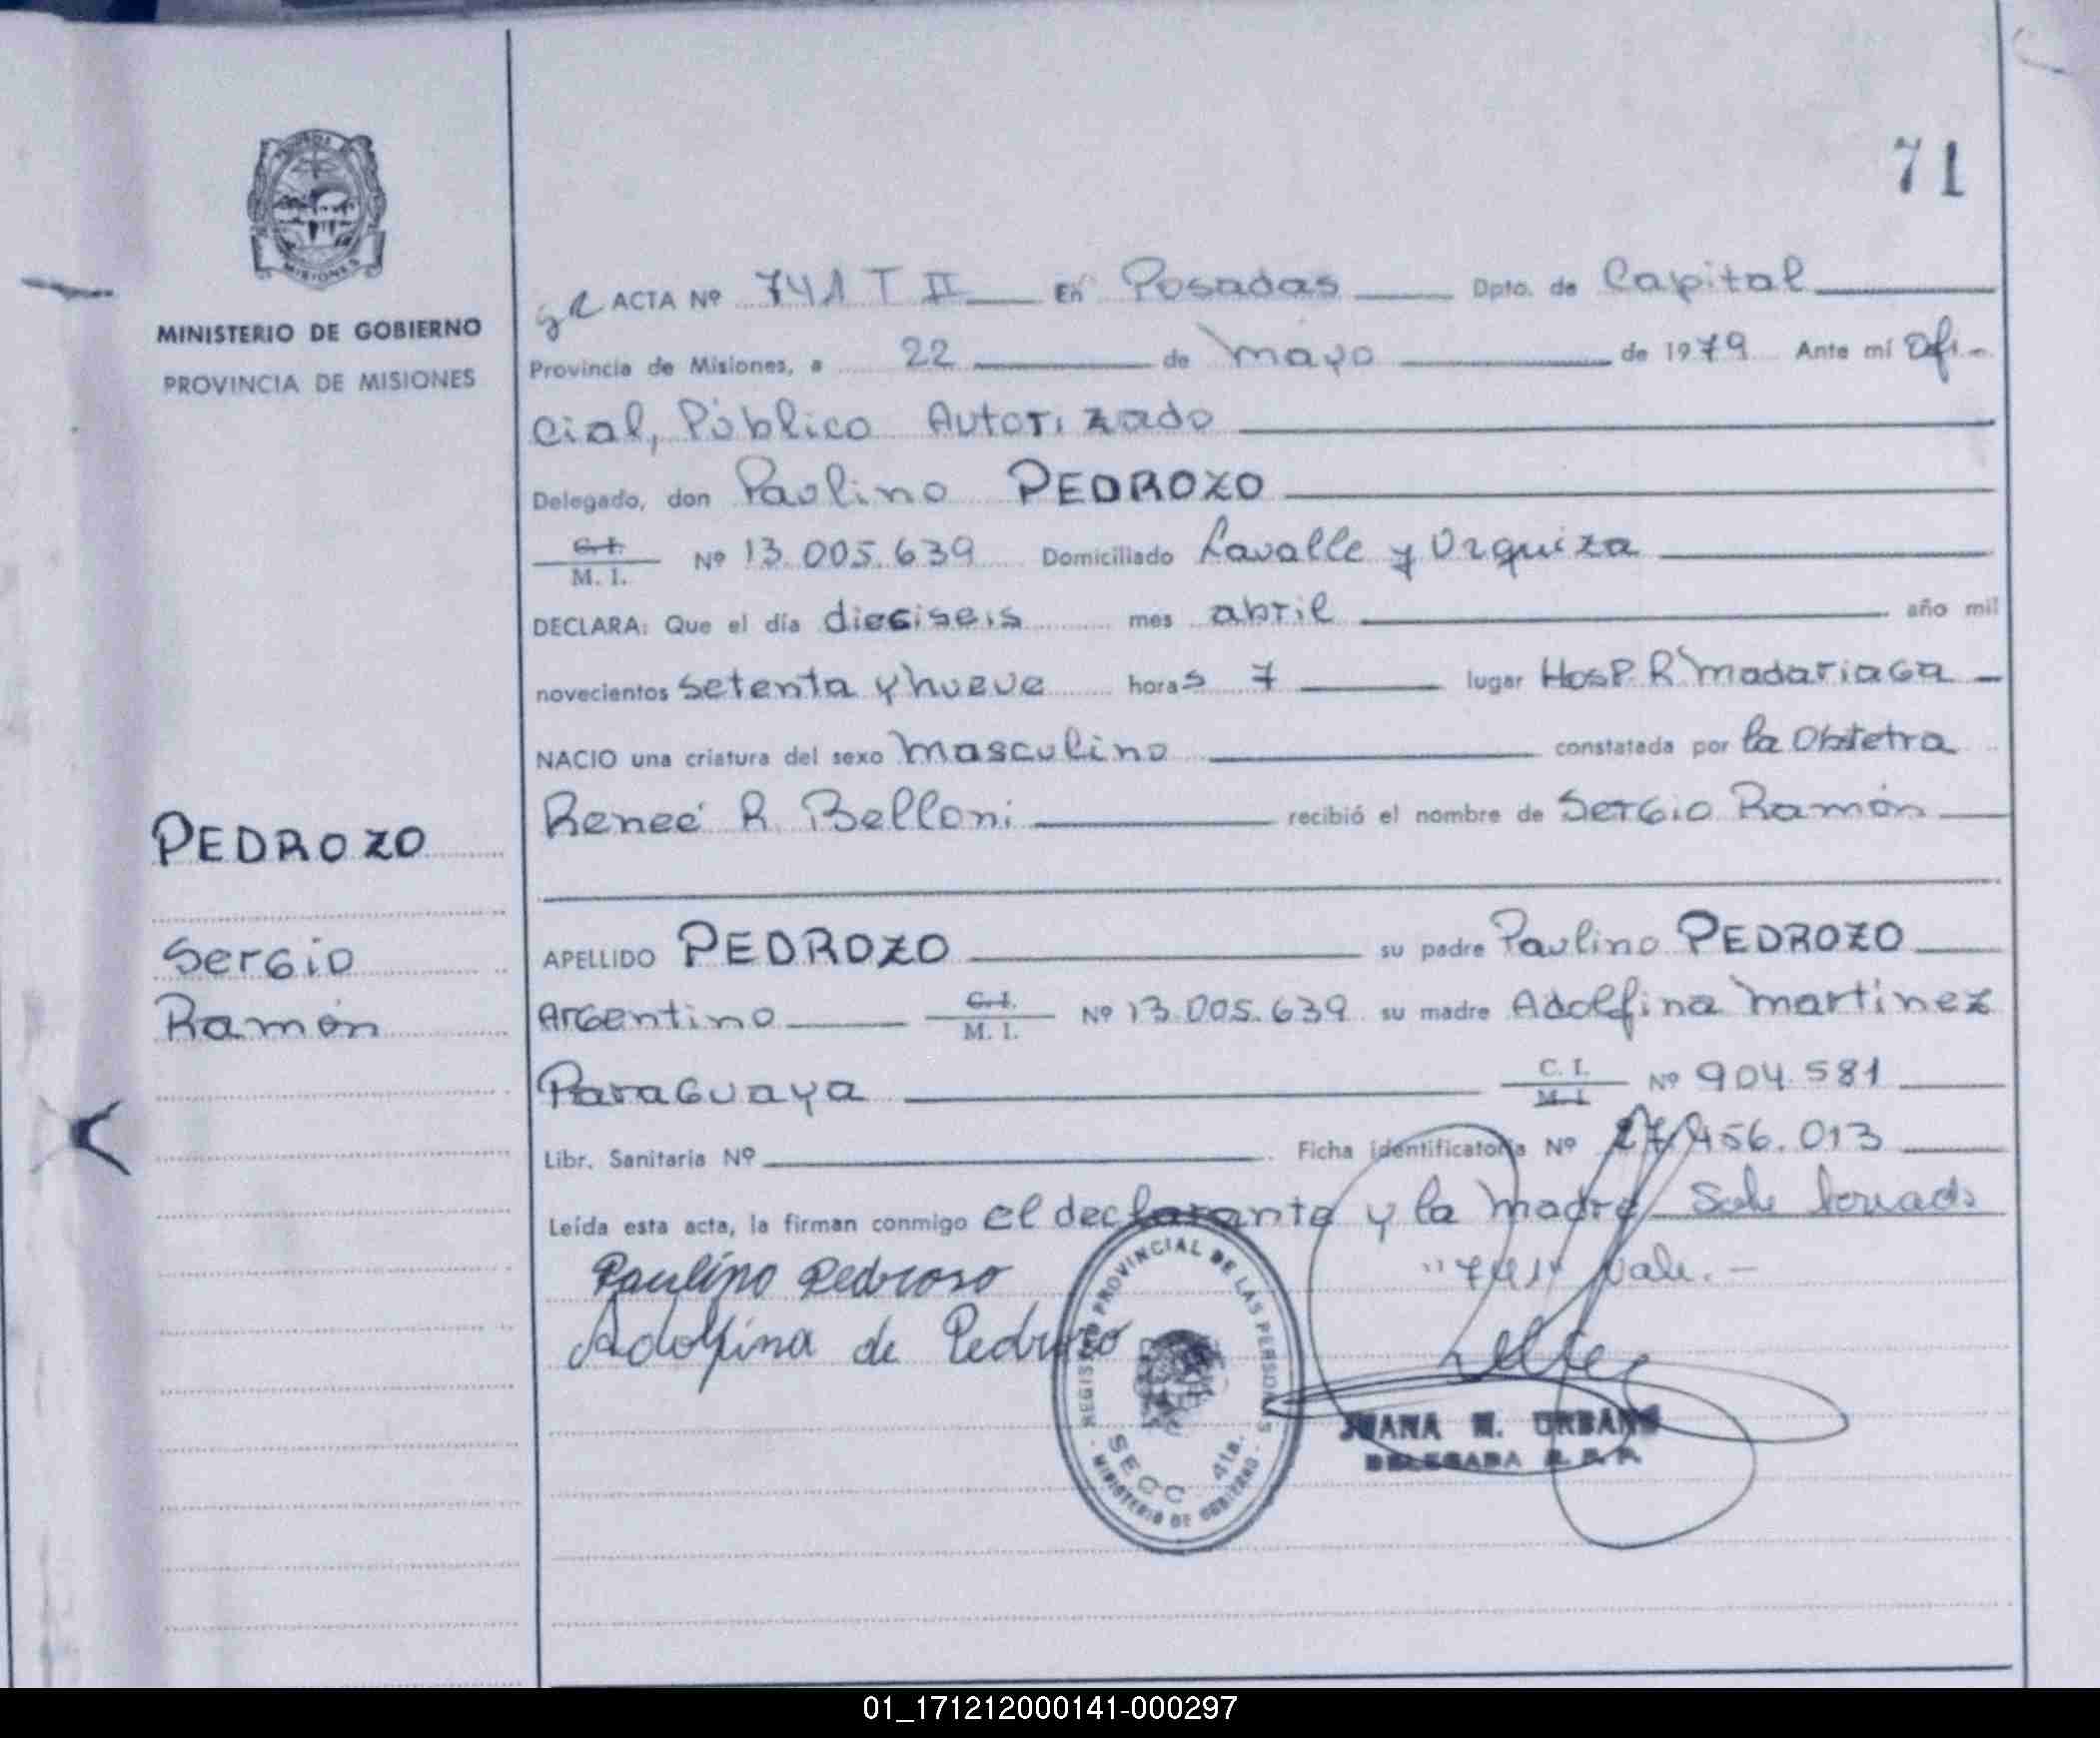 71
MINISTERIO DE GOBIERNO
PROVINCIA DE MISIONES
ACTA Nº 741 T II En Posadas Dpto. de Capital
Provincia de Misiones, a 22 de mayo de 1979 Ante mí Ofi-
cial, Público Autorizado
Delegado, don Paulino PEDROZO
C.I. M.I. Nº 13.005.639 Domiciliado Lavalle y Urquiza
DECLARA: Que el día dieciseis mes abril año mil
novecientos setenta y nueve horas 7 lugar Hosp. R. Madariaga
NACIO una criatura del sexo masculino constatada por la Obstetra
Reneé R. Belloni recibió el nombre de Sergio Ramón
PEDROZO
Sergio
Ramón
APELLIDO PEDROZO su padre Paulino PEDROZO
Argentino C.I. M.I. Nº 13.005.639 su madre Adolfina Martinez
Paraguaya C.I. M.I. Nº 904.581
Libr. Sanitaria Nº Ficha identificatoria Nº 27.456.013
Leída esta acta, la firman conmigo el declarante y la madre Sobre borrado
"741" Vale.-
Paulino Pedroso
Adolfina de Pedrozo
REGISTRO PROVINCIAL DE LAS PERSONAS
SECC. 4ta.
- MINISTERIO DE GOBIERNO -
JUANA M. URBANO
DELEGADA R.P.P.
01_171212000141-000297